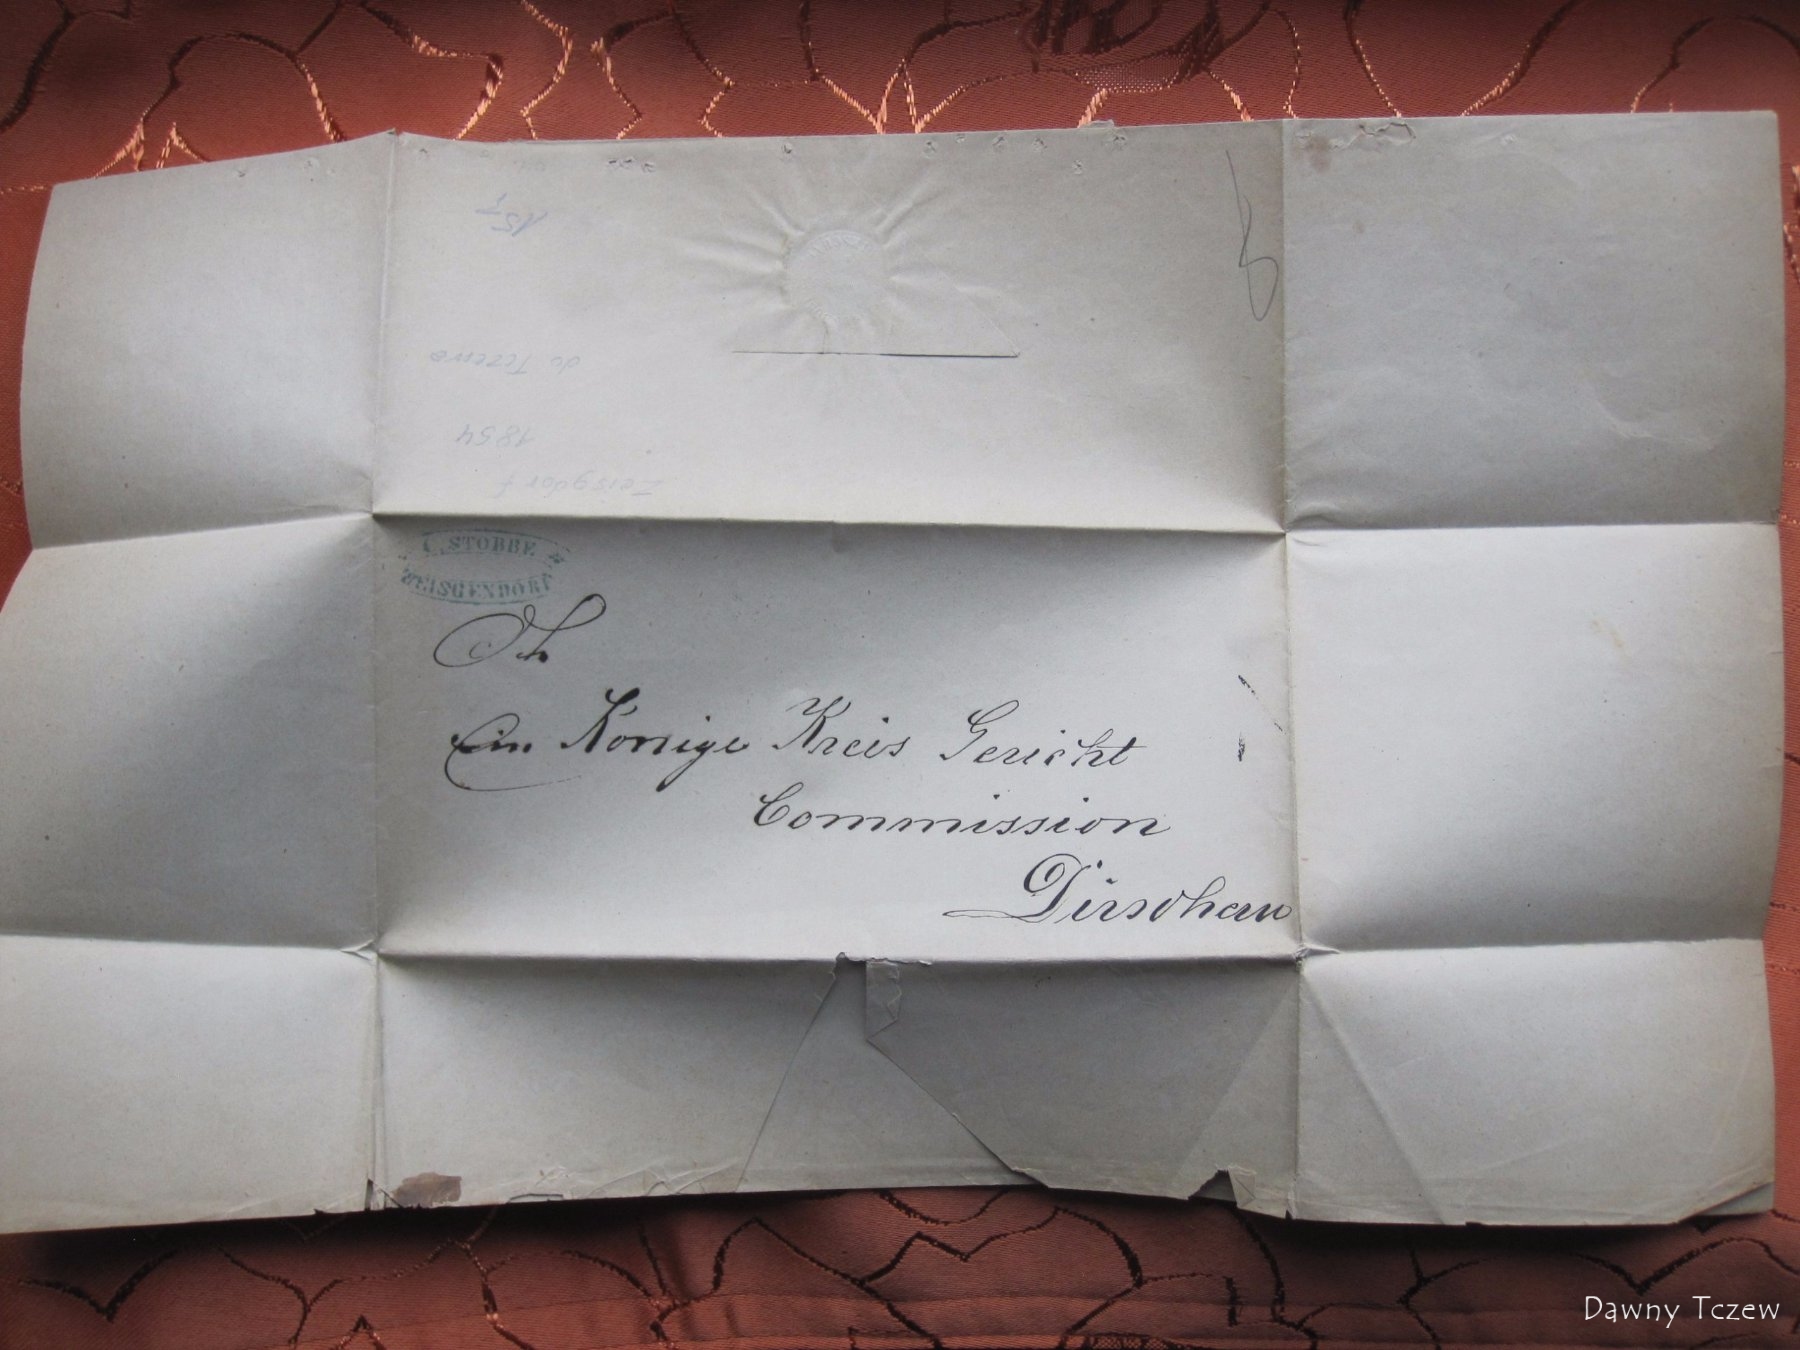 15
do Tczewa
1854
Zeisgdorf
C. STOBBE
ZEISGENDORF
An
Ein Königl Kreis Gericht
Commission
Dirschau
Dawny Tczew